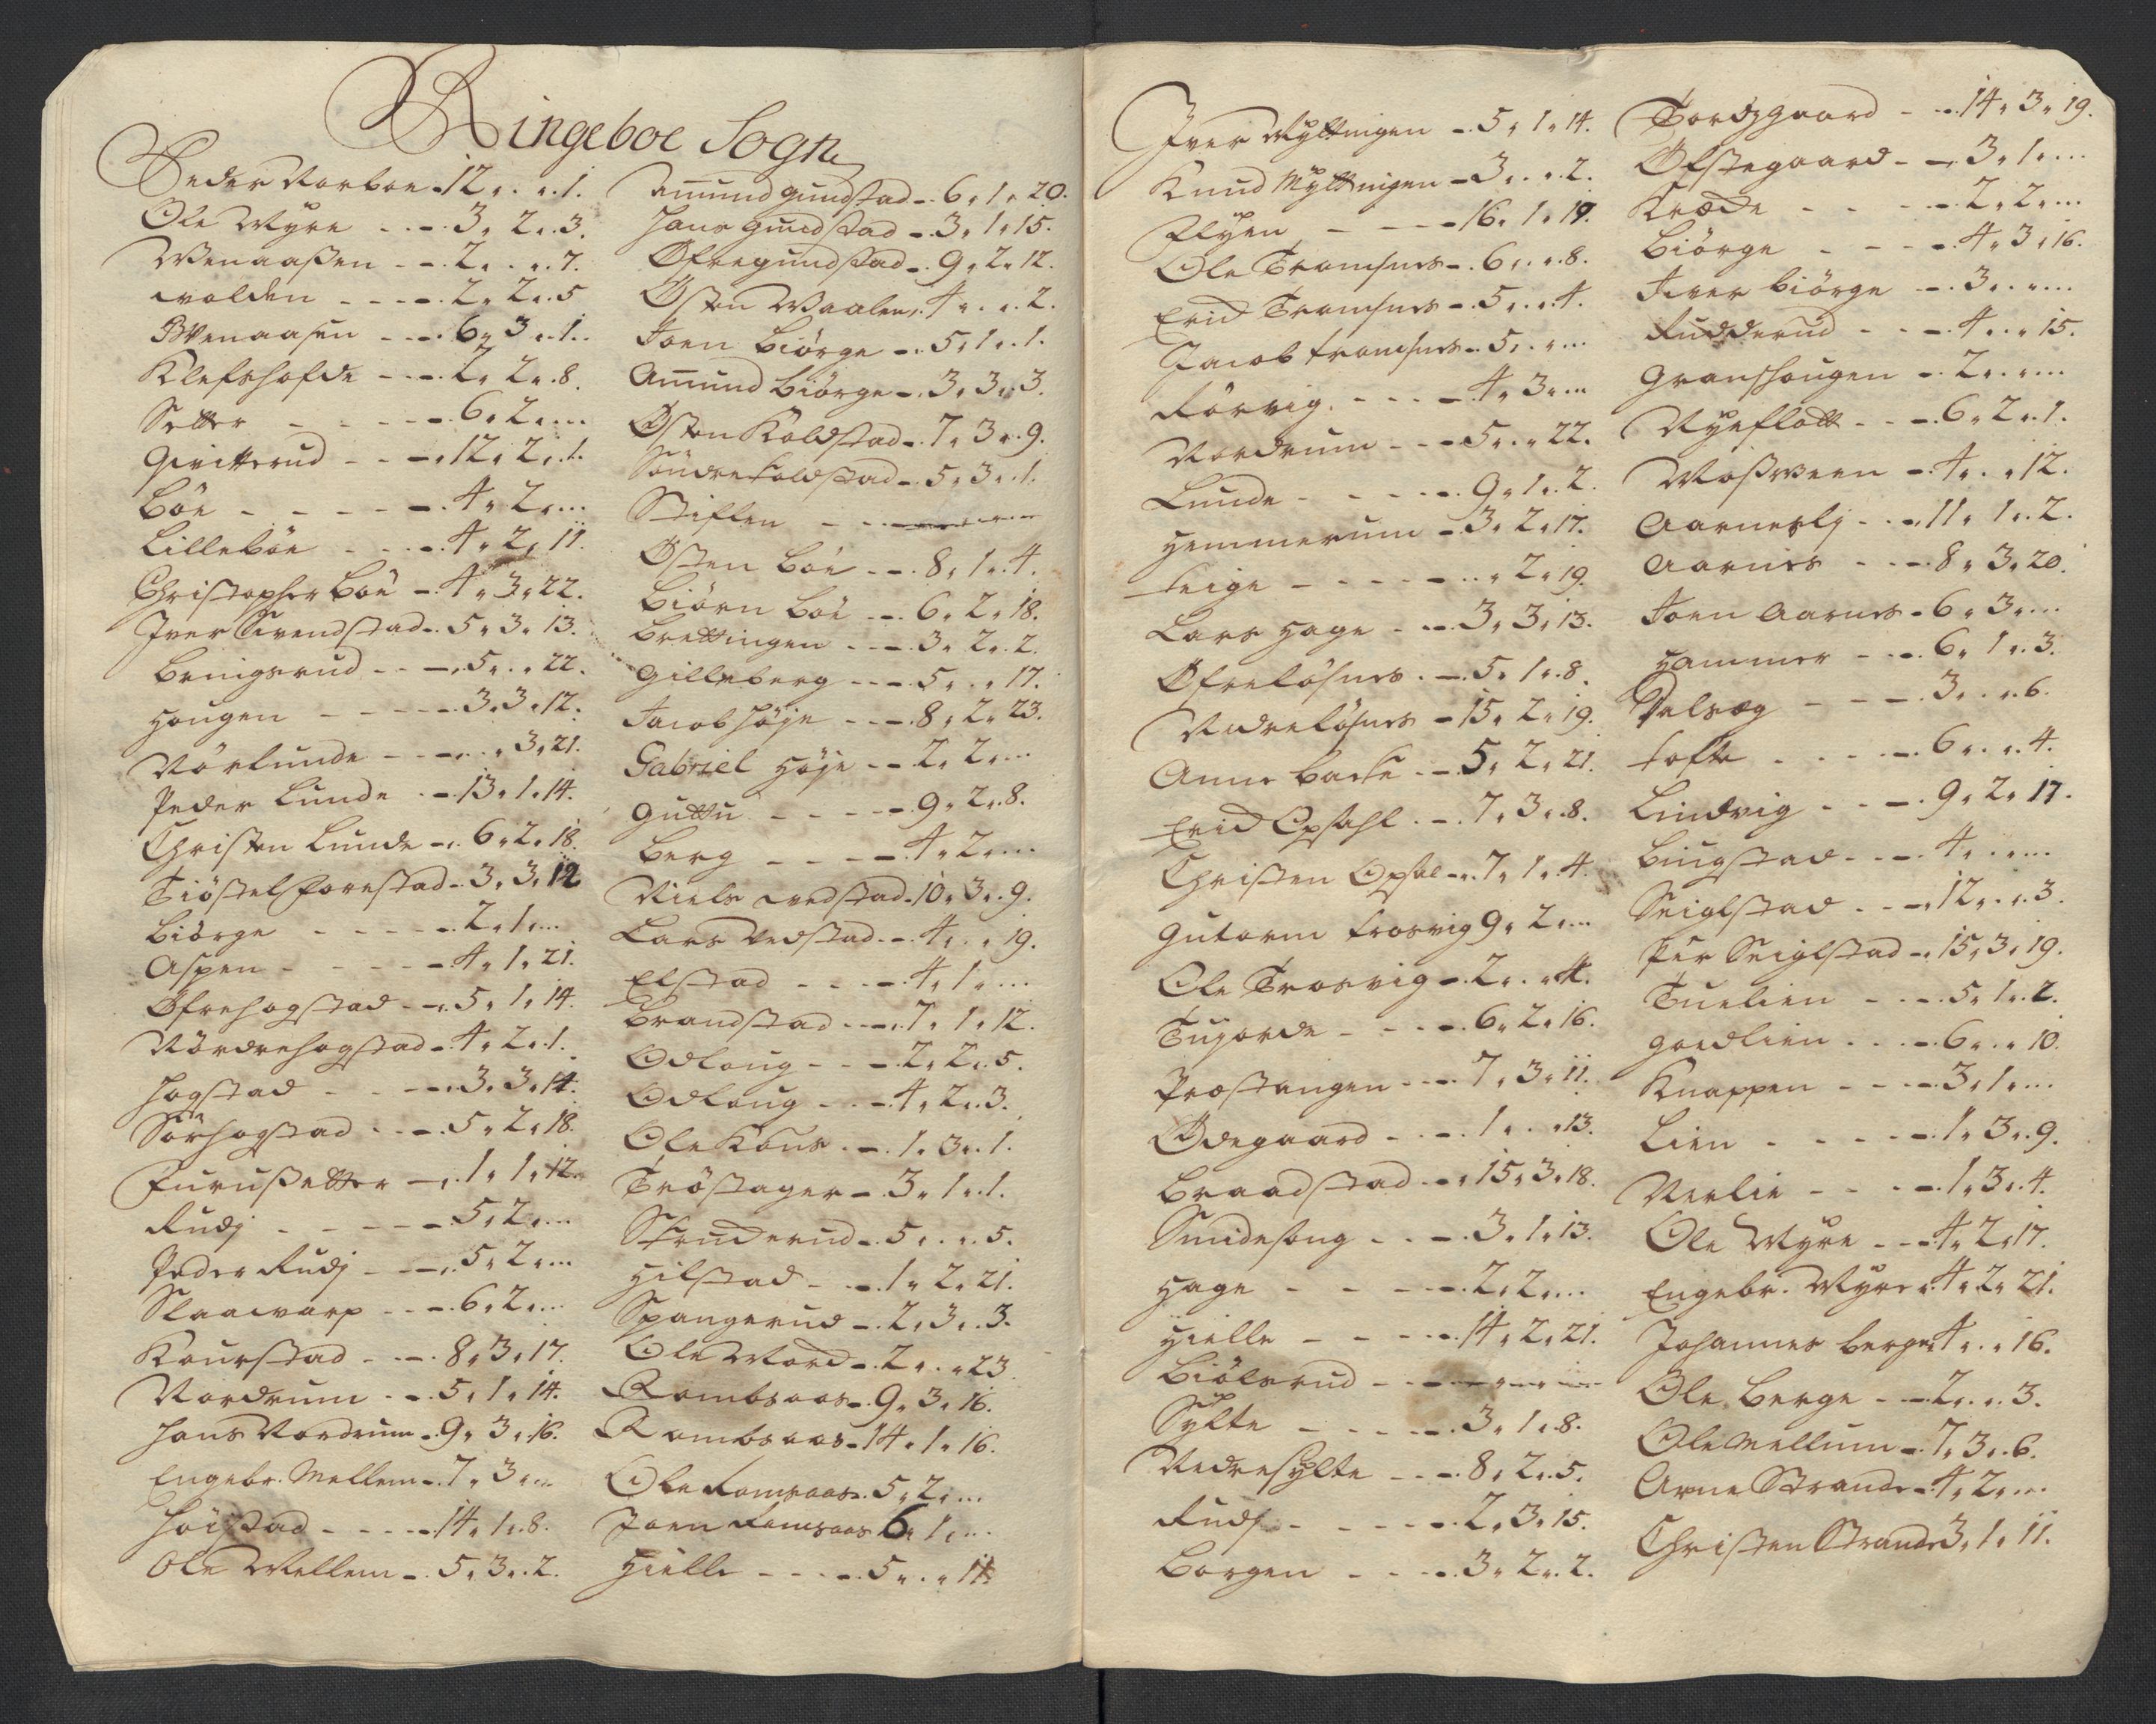 Ringeboe Sogn
Peder Norboe - 12 " . " . 1.
Ole Myre - - - 3 " 2 " . 3.
Wenaaßen - - 2 " . " . 7.
volden - - - - 2 " 2 " . 5
Wenaasen - - - 6 " 3 " . 1.
Klefshofde - - - 2 " 2 " . 8.
Setter - - - - 6 " 2 " ...
Qvitterud - - - 12 " 2 " . 1.
Böe - - - - - 4 " 2 " ...
Lilleböe - - - 4 " 2 " 11.
Christopher Böe - 4 " 3 " 22.
Iver Svendstad - 5 " 3 " 13.
Beningsrud - - - 5 " . " 22.
Hougen - - - - 3 " 3 " 12.
Nörlunde - - - - . " 3 " 21.
Peder Lunde - - 13 " 1 " 14.
Christen Lunde - 6 " 2 " 18.
Tiöstel Forestad - 3 " 3 " 12
Biörge - - - - 2 " 1 " ...
Aspen - - - - 4 " 1 " 21.
Öfrehogstad - - 5 " 1 " 14.
Nördrehogstad - 4 " 2 " . 1.
Hogstad - - - - 3 " 3 " 14.
Sörhogstad - - - 5 " 2 " 18.
Furusetter - - 1 " 1 " 12.
Rudj - - - - - 5 " 2 " ...
Peder Rudj - - - 5 " 2 " ...
Skaawarp - - - 6 " 2 " ...
Kourstad - - - 8 " 3 " 17.
Nordrum - - - 5 " 1 " 14.
Hans Nordrum - 9 " 3 " 16.
Engebr. Mellem - 7 " 3 " ...
Höistad - - - - 14 " 1 " . 8.
Ole Mellem - 5 " 3 " . 2.
Amund Gundstad - 6 " 1 " 20.
Hans Gundstad - 3 " 1 " 15.
Öfregundstad - 9 " 2 " 12.
Östen Waalen - 4 " . " . 2.
Joen Biörge - 5 " 1 " . 1.
Amund Biörge - 3 " 3 " . 3.
Östen Koldstad - 7 " 3 " . 9.
Söndre Koldstad - 5 " 3 " . 1.
Stiflen - - -
Östen Böe - - 8 " 1 " . 4.
Biörn Böe - - 6 " 2 " 18.
Brettingen - - - 3 " 2 " . 2.
Gilleberg - - - 5 " . " 17.
Jacob Höje - - - 8 " 2 " 23.
Gabriel Höje - - 2 " 2 " ...
Guttu - - - - 9 " 2 " . 8.
Berg - - - - 4 " 2 " ...
Niels Vedstad - 10 " 3 " . 9.
Lars Vedstad - - 4 " . " 19.
Elstad - - - - 4 " 1 " ...
Brandstad - - - 7 " 1 " 12.
Odloug - - - 2 " 2 " . 5.
Odloug - - - 4 " 2 " . 3.
Ole Köns - - 1 " 3 " . 1.
Tröstager - 3 " 1 " . 1.
Skruderud - 5 " . " . 5.
Hilstad - - - 1 " 2 " 21.
Spangerud - 2 " 3 " . 3.
Ole Nord - 2 " . " 23.
Rombsaas - 9 " 3 " 16.
Rombsaas - 14 " 1 " 16.
Ole Romsaas - 5 " 2 " ...
Joen Romsaas 6 " 1 " ...
Hielle - - - - 5 " . " 14.
Iver Mÿttingen - 5 " 1 " 14.
Knud Mÿttingen - 3 " . " . 2.
Flÿen - - - - 16 " 1 " 19.
Ole Tromsnes - 6 " . " . 8.
Erich Tromsnes - 5 " . " . 4.
Jacob Tromsnes - 5 " . " ...
Rörvig - - - - 4 " 3 " ...
Nordrum - - - 5 " . " 22.
Lunde - - - - - 9 " 1 " . 2.
Hemmerum - 3 " 2 " 17.
Teige - - - - - . " 2 " 19.
Lars Hage - - - 3 " 3 " 13.
Öfrelösnes - - 5 " 1 " . 8.
Nedrelösnes - 15 " 2 " 19.
Anne Backe - - 5 " 2 " 21.
Erich Opsahl - - 7 " 3 " . 8.
Christen Opsal - - 7 " 1 " . 4.
Gutorm Frosvig 9 " 2 " ...
Ole Trosvig - 2 " . " . 4.
Tujorde - - - - 6 " 2 " 16.
Præstangen - - - 7 " 3 " 11.
Ödegaard - - - 1 " . " 13.
Braadstad - - - 15 " 3 " 18.
Smidesong - - - 3 " 1 " 13.
Hage - - - - - 2 " 2 " ...
Hielle - - - - - 14 " 2 " 21.
Biölsrud - - -
Sÿlte - - - - - 3 " 1 " . 8.
Nedresÿlte - - - 8 " 2 " . 5.
Rudj - - - - - 2 " 3 " 15.
Borgen - - - - 3 " 2 " . 2.
Tordzgaard - - - 14 " 3 " 19.
Öfstegaard - - 3 " 1 " ...
Kræde - - - - 2 " 2 " ...
Biörge - - - - 4 " 3 " 16.
Iver Biörge - - 3 " . " ...
Rudderud - - - 4 " . " 15.
Granshougen - 2 " . " ...
Nÿeflott - - - 6 " 2 " . 1.
Moßween - 4 " . " 12.
Aarneslj - - - 11 " 1 " . 2.
Aarnes - - - - 8 " 3 " 20.
Joen Aarnes - 6 " 3 " ...
Hammer - - - 6 " 1 " . 3.
Dalsæg - - - - 3 " . " . 6.
Tofte - - - - - 6 " . " . 4.
Lindvig - - - - 9 " 2 " 17.
Bingstad - - - - 4 " . " ...
Seiglstad - - - - 12 " . " . 3.
Per Seiglstad - - 15 " 3 " 19.
Tuelien - - - - 5 " 1 " . 2.
Goedlien - - - - 6 " . " 10.
Knappen - - - - 3 " 1 " ...
Lien - - - - - 1 " 3 " . 9.
Nerlie - - - - 1 " 3 " . 4.
Ole Mÿre - - - 4 " 2 " 17.
Engebr. Mÿre - 4 " 2 " 21.
Johannes Berge - 4 " . " 16.
Ole Berge - - - 2 " . " . 3.
Ole Mellum - 7 " 3 " . 6.
Arne Strande - 4 " 2 " ...
Christen Strande 3 " 1 " 11.